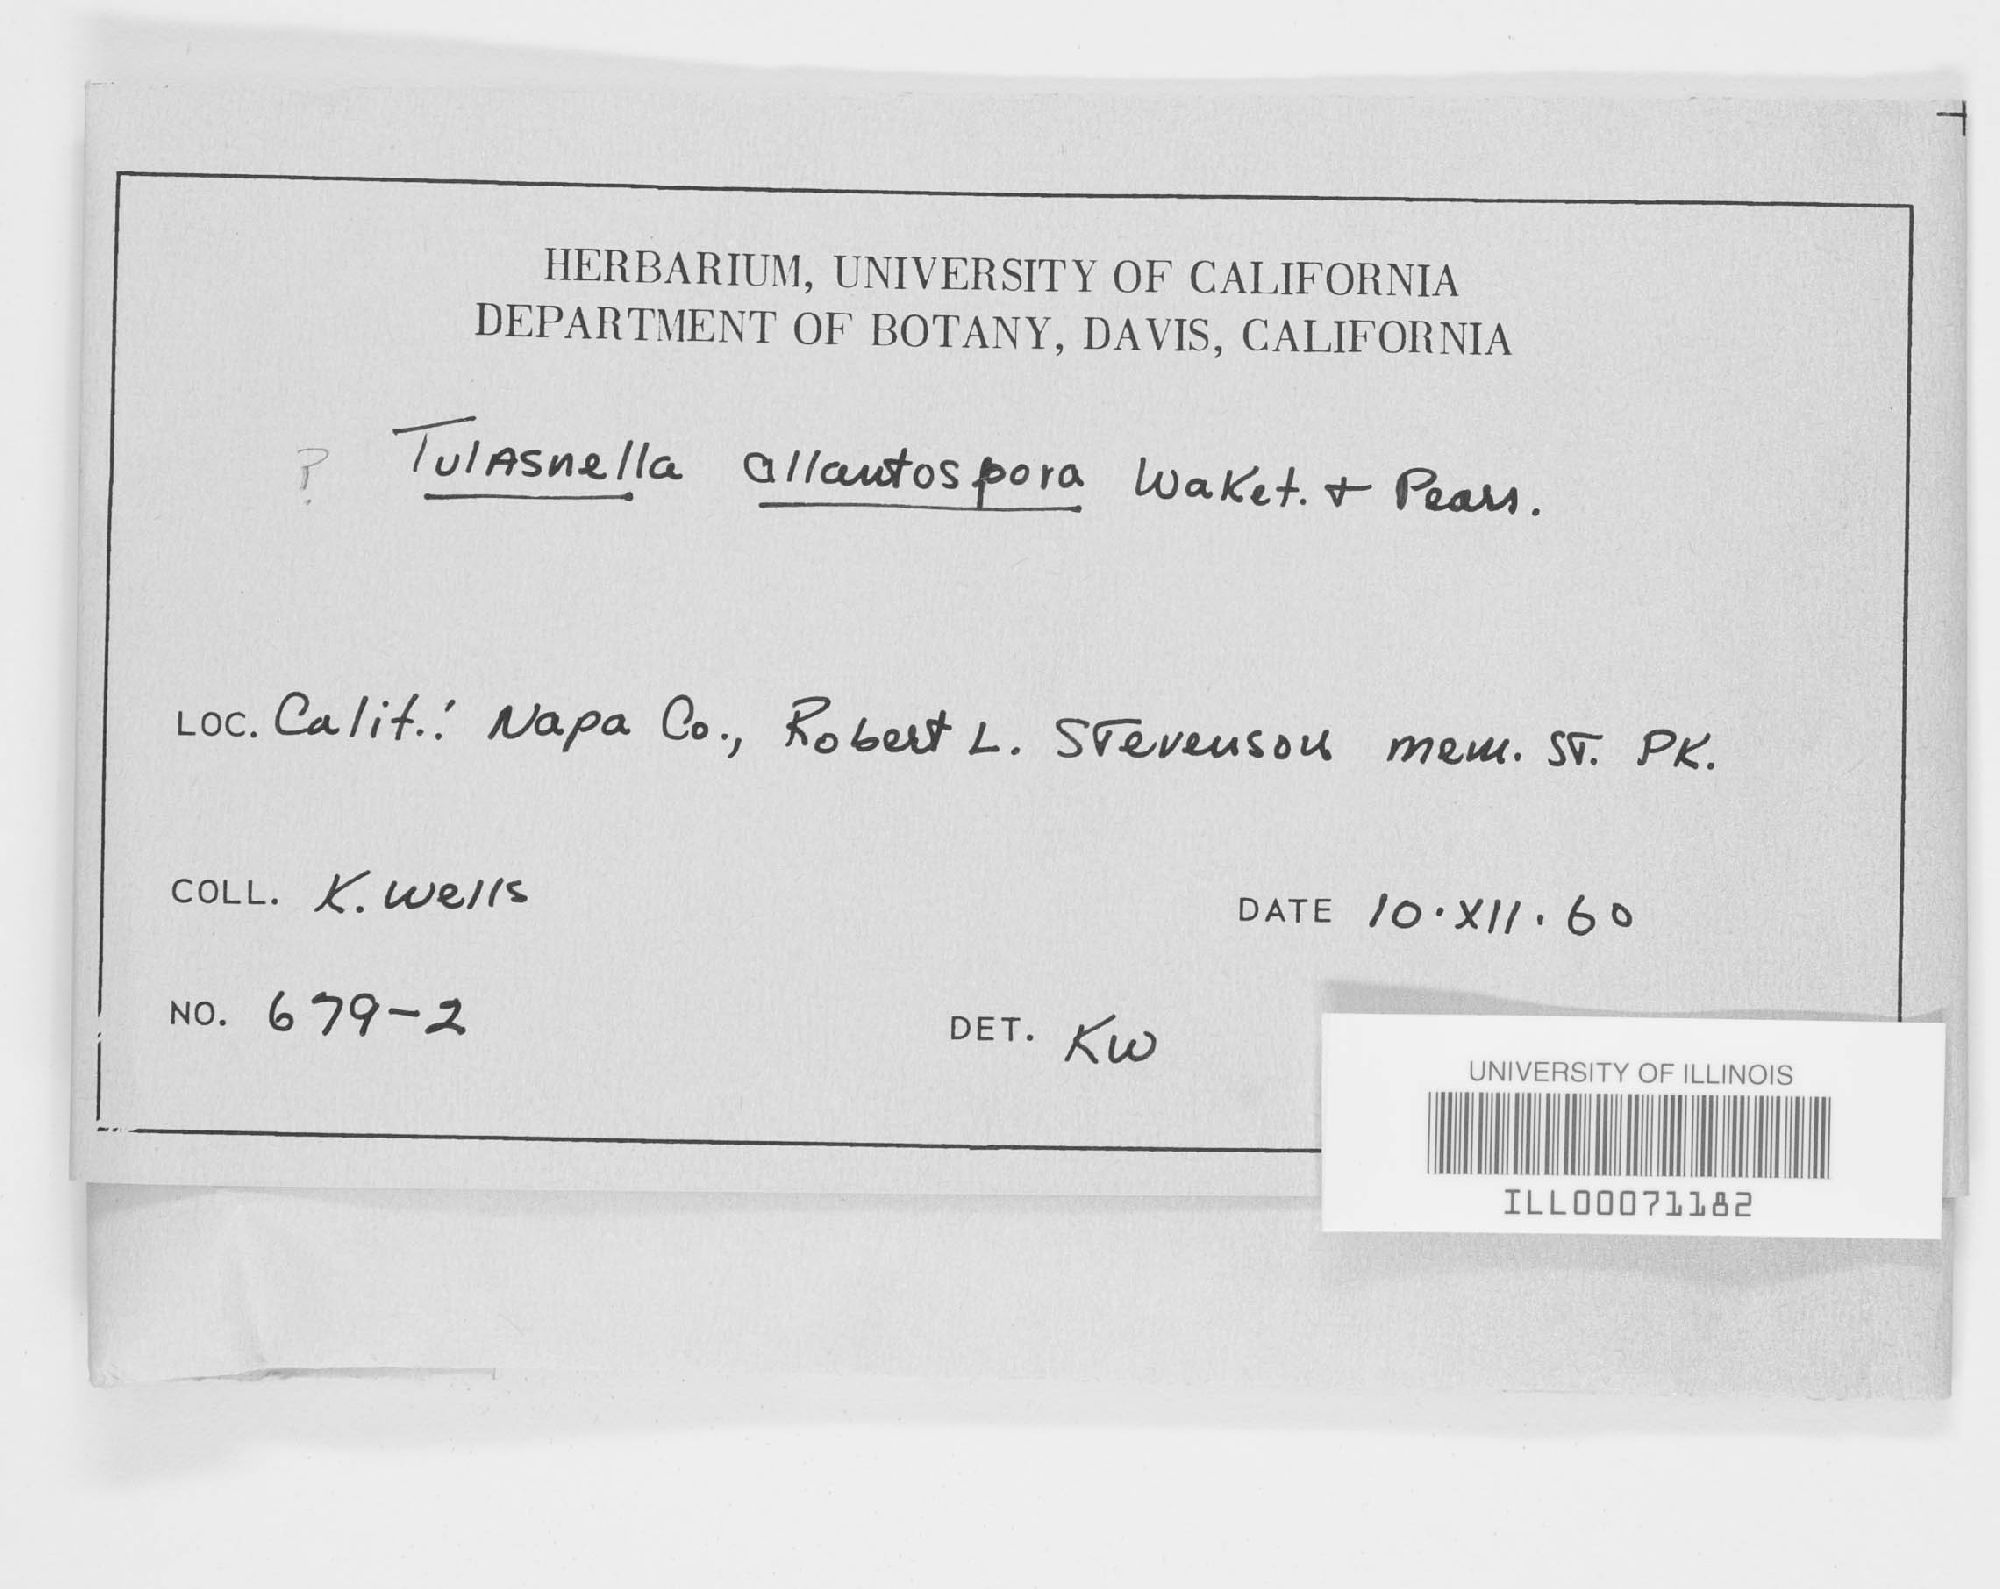 HERBARIUM, UNIVERSITY OF CALIFORNIA
DEPARTMENT OF BOTANY, DAVIS, CALIFORNIA
? Tulasnella allantospora Wakef. + Pears.
LOC. Calif.: Napa Co., Robert L. Stevenson mem. St. Pk.
COLL. K. Wells
DATE 10·XII·60
NO. 679-2
DET. KW
UNIVERSITY OF ILLINOIS
ILL00071182